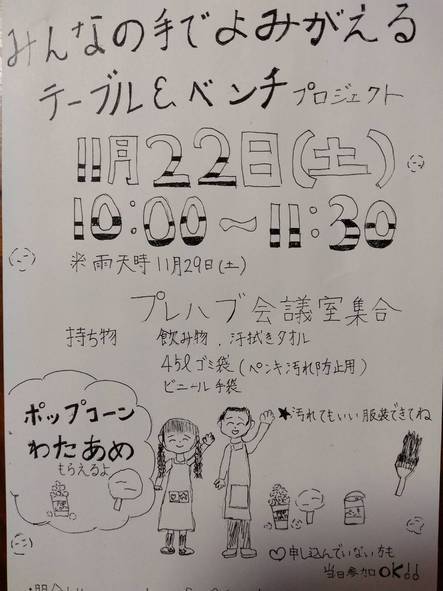 みんなの手でよみがえる
テーブル&ベンチプロジェクト
11月22日(土)
10:00～11:30
※雨天時11月29日(土)
プレハブ会議室集合
持ち物 飲み物、汗拭きタオル
45ℓゴミ袋(ペンキ汚れ防止用)
ビニール手袋
★汚れてもいい服装できてね
ポップコーン
わたあめ
もらえるよ
♡申し込んでいない方も
当日参加OK!!